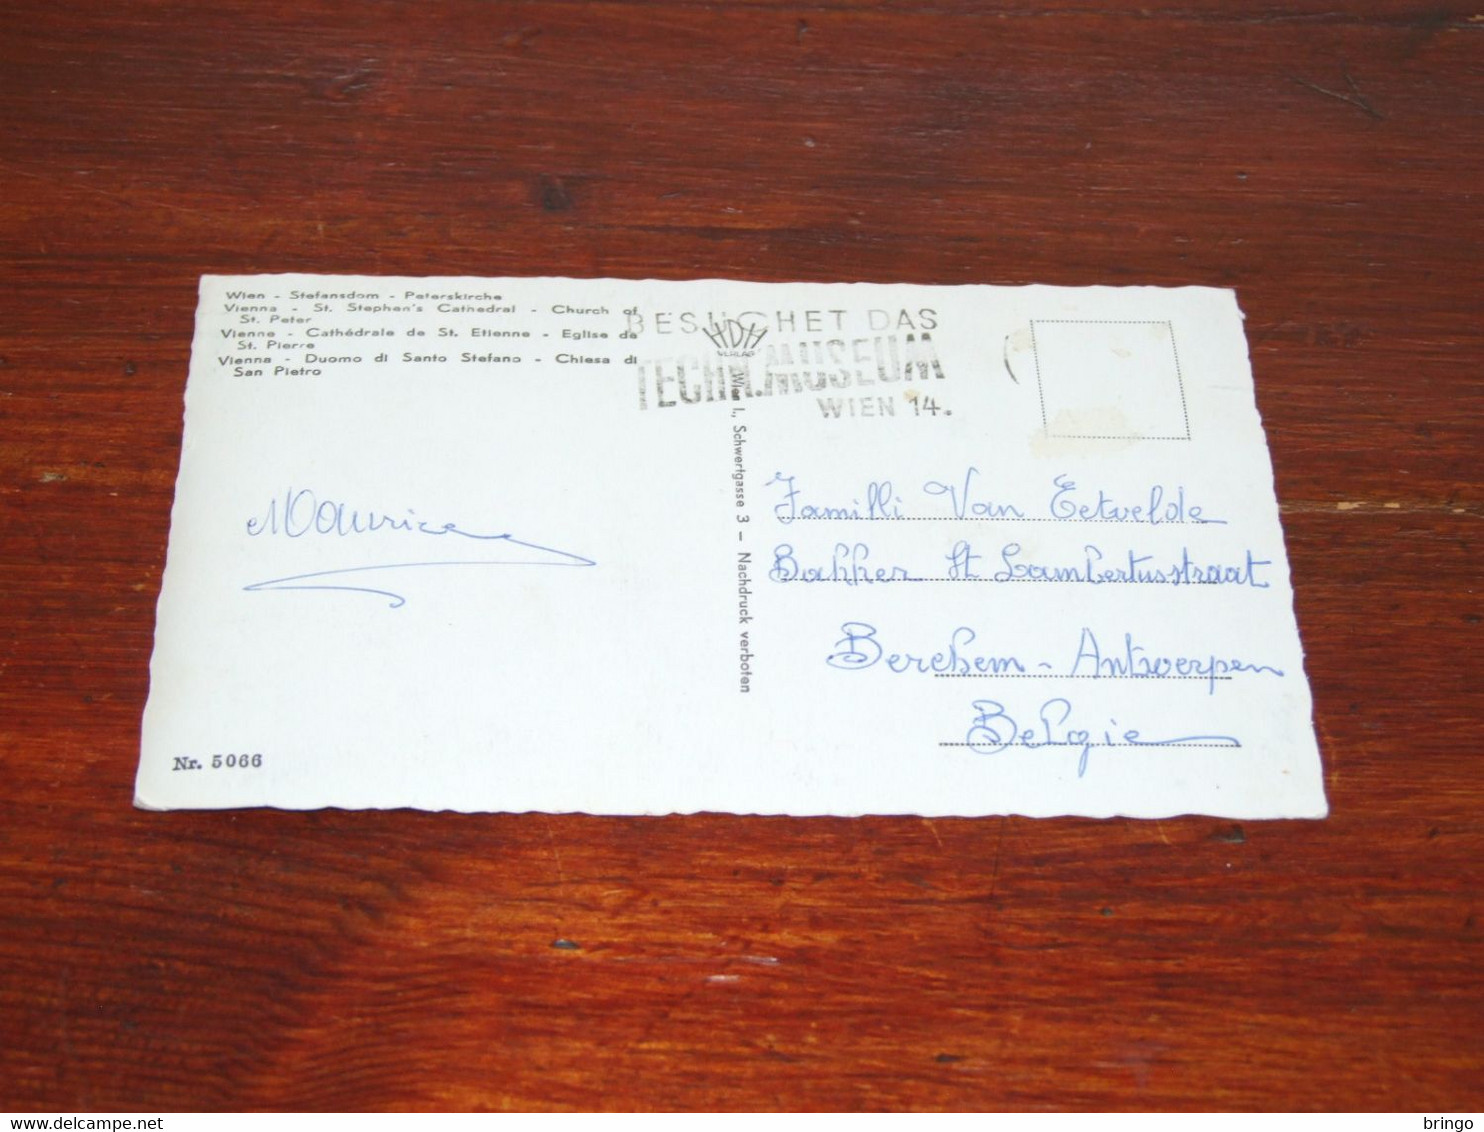 Wien - Stefansdom - Peterskirche
Vienna - St. Stephen's Cathedral - Church of
St. Peter
Vienne - Cathédrale de St. Etienne - Eglise de
St. Pierre
Vienna - Duomo di Santo Stefano - Chiesa di
San Pietro
BESUCHET DAS
TECHN. MUSEUM
WIEN 14.
HDH
VERLAG
Wien I., Schwertgasse 3 - Nachdruck verboten
Maurice
Familli Van Eetvelde
Bakker St Lambertusstraat
Berchem - Antwerpen
Belgie
Nr. 5066
www.delcampe.net
bringo